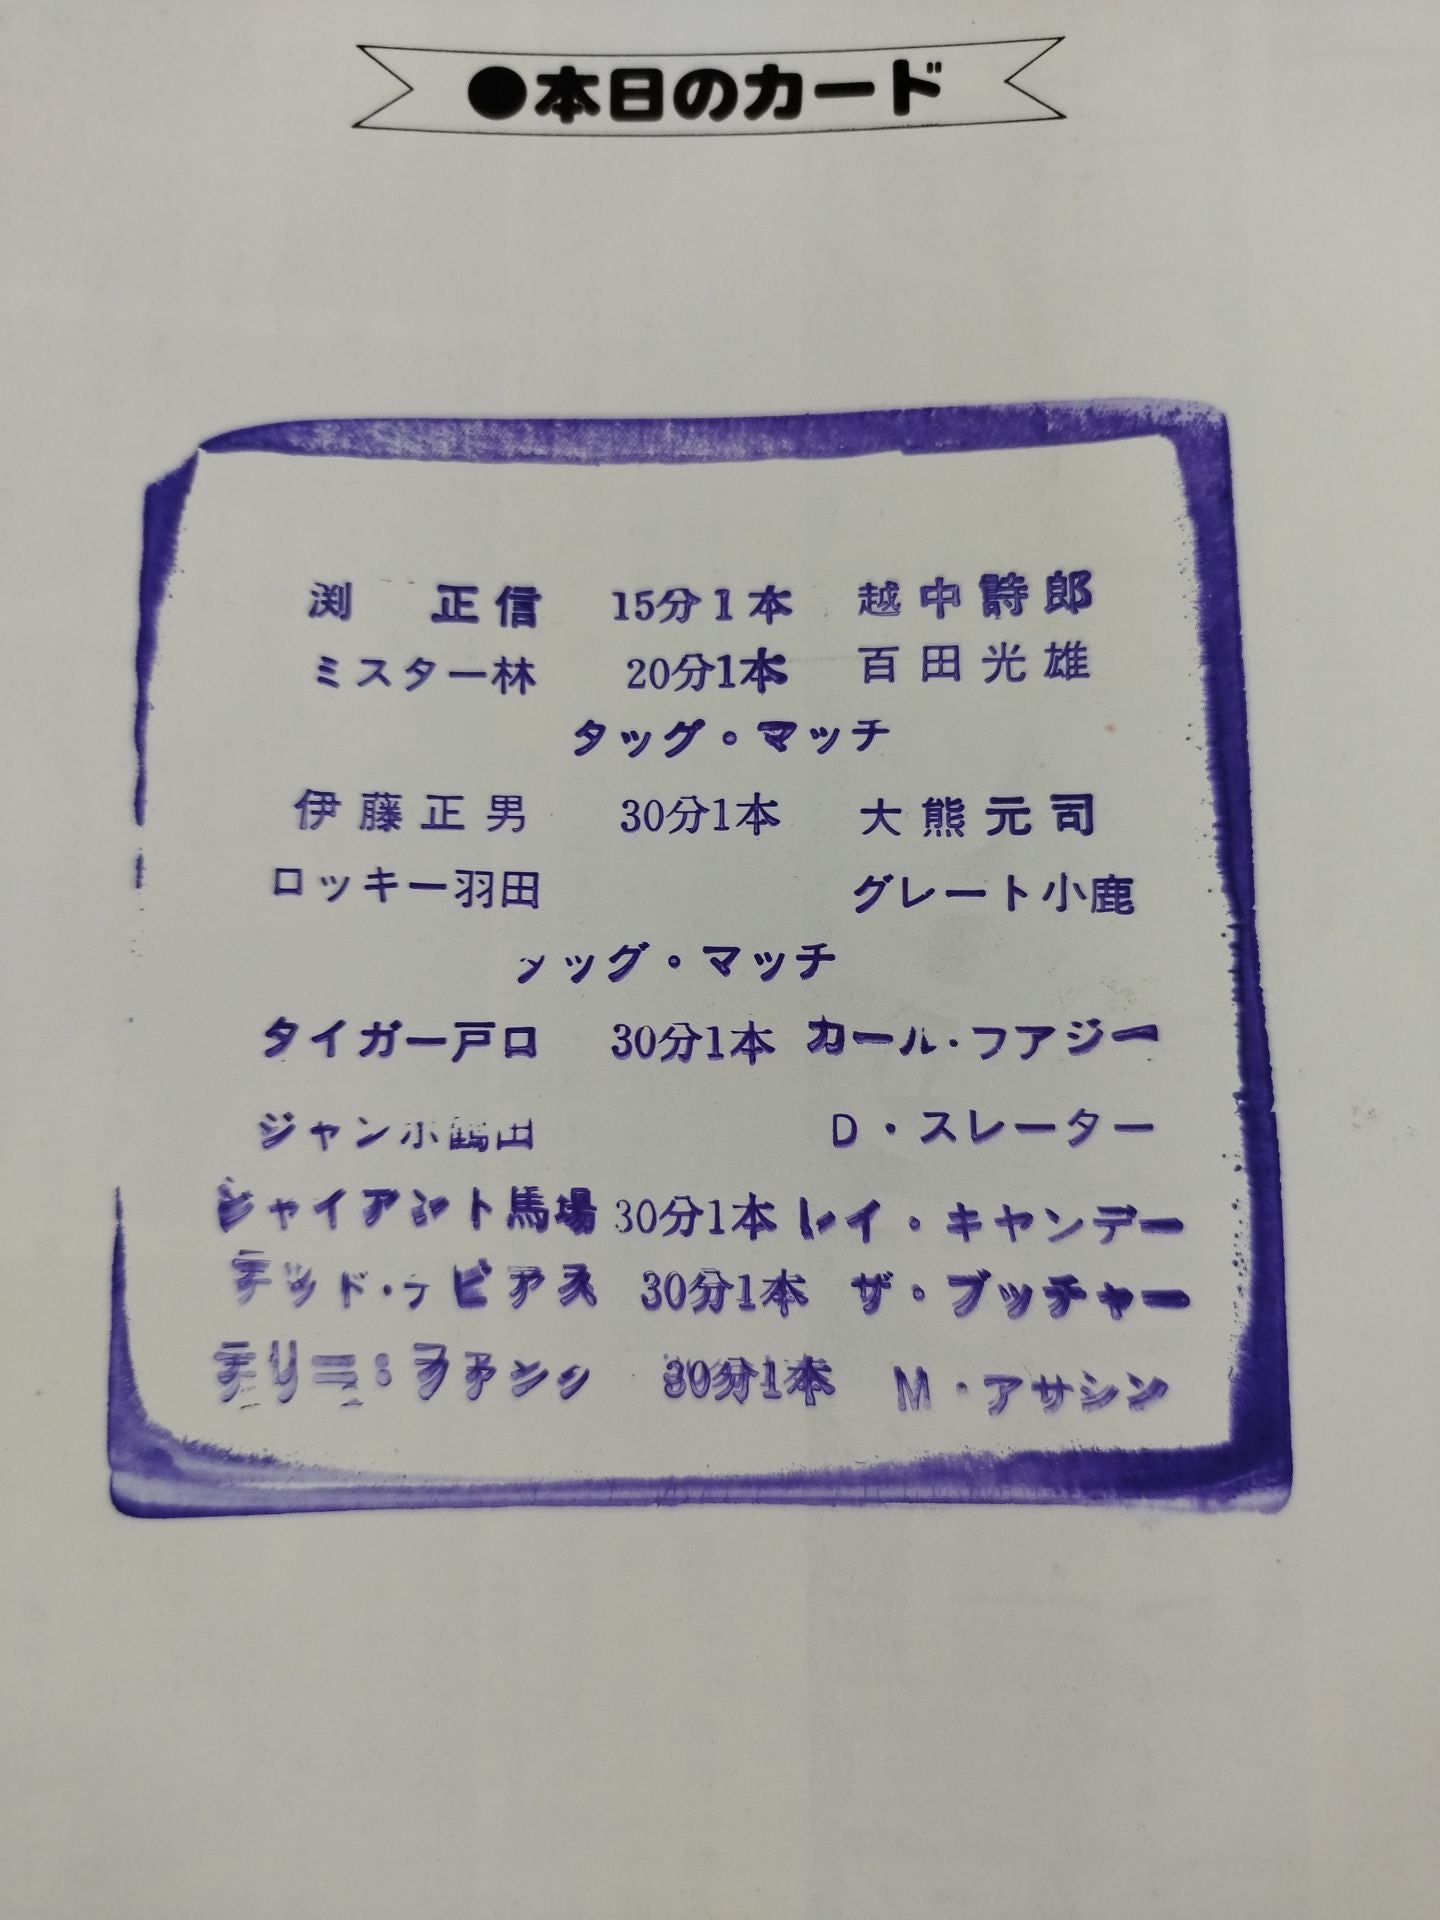 ●本日のカード
渕 正信 15分1本 越中詩郎
ミスター林 20分1本 百田光雄
タッグ・マッチ
伊藤正男 30分1本 大熊元司
ロッキー羽田 グレート小鹿
タッグ・マッチ
タイガー戸口 30分1本 カール・フアジー
ジャンボ鶴田 D・スレーター
ジャイアント馬場 30分1本 レイ・キヤンデー
テッド・デビアス 30分1本 ザ・ブッチャー
テリー・ファンク 30分1本 M・アサシン